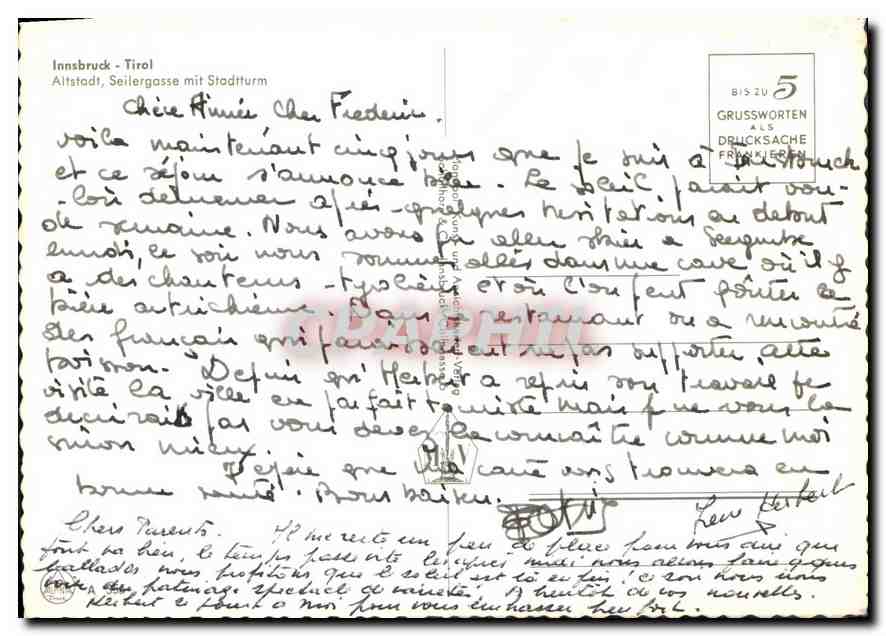 Innsbruck - Tirol
Altstadt, Seilergasse mit Stadtturm
BIS ZU 5
GRUSSWORTEN
ALS
DRUCKSACHE
FRANKIEREN
Chère Aimée Cher Frederic.
voila maintenant cinq jours que je suis à Innsbruck
et ce séjour s'annonce bien. Le soleil parait vou-
loir demeurer après quelques hesitations au debut
de semaine. Nous avons pu aller skier a
lundi, ce soir nous sommes allés dans une cave où il y
a des chanteurs tyroliens et où l'on peut goûter la
bière autrichienne. Dans ce restaurant on a rencontré
des français qui paraissaient ne pas supporter cette
boisson. Depuis qu'Herbert a repris son travail je
visite la ville en parfait touriste mais je ne vous la
decrirais pas vous devez la connaître comme moi
sinon mieux.
J'espère que ma carte vous trouvera en
bonne santé. Bons baisers.
Herbert
Chers Parents. Il me reste un peu de place pour vous dire que
tout va bien, le temps passe vite les après midi nous allons faire
ballades nous profitons que le soleil est là enfin! ce soir nous irons
voir du patinage spectacle de varietés. A bientot de vos nouvelles.
Herbert se joint a moi pour vous embrasser bien fort.